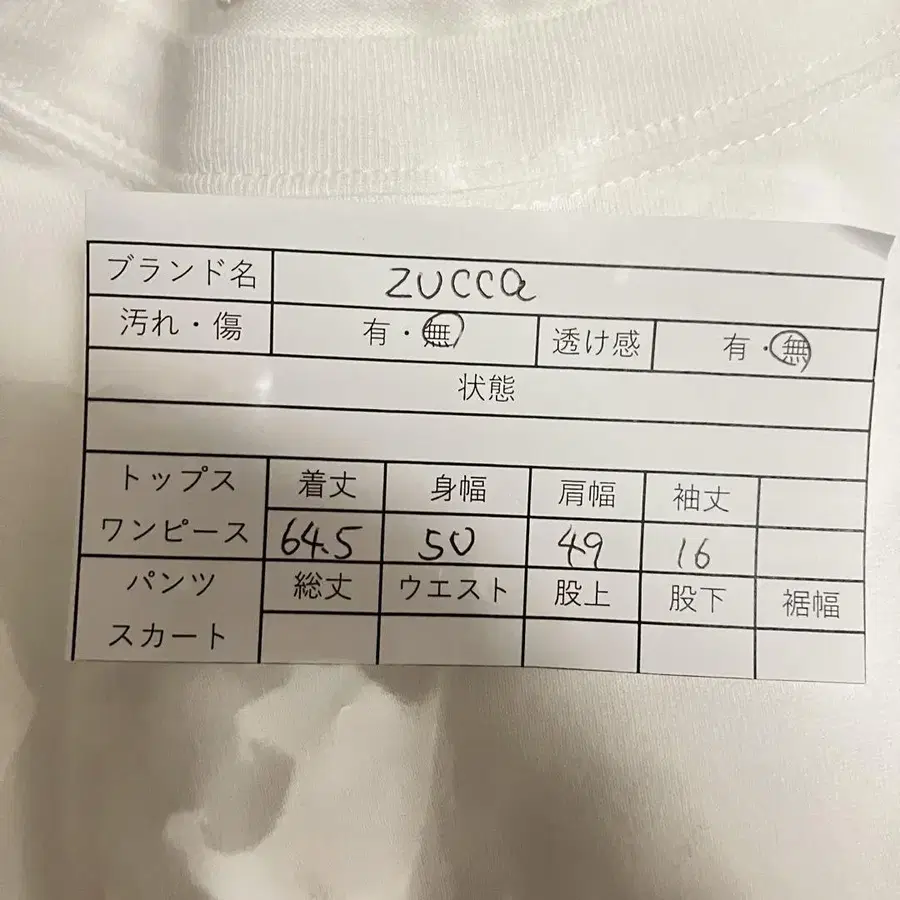 ブランド名 ZUCCa
汚れ・傷 有・無 透け感 有・無
状態
トップス 着丈 身幅 肩幅 袖丈
ワンピース 64.5 50 49 16
パンツ 総丈 ウエスト 股上 股下 裾幅
スカート